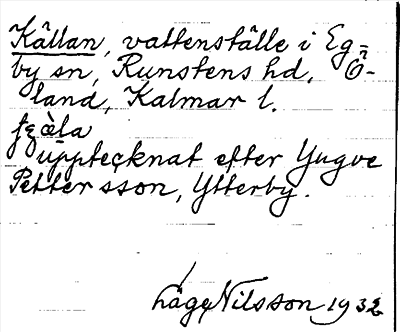 Källan, vattenställe i Eg
by sn, Runstens hd, Ö-
land, Kalmar l.
upptecknat efter Yngve
Pettersson, Ytterby.
Nilsson 1932